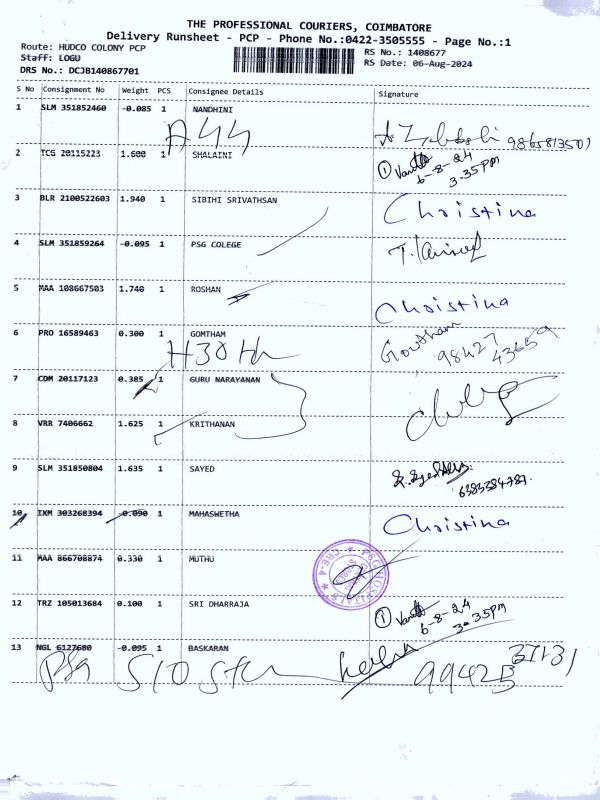 THE PROFESSIONAL COURIERS, COIMBATORE
Delivery Runsheet - PCP - Phone No.:0422-3505555 - Page No.:1
Route: HUDCO COLONY PCP
RS No.: 1408677
Staff: LOGU
RS Date: 06-Aug-2024
DRS No.: DCJB140867701
S No Consignment No Weight PCS Consignee Details Signature
1 SLM 351852460 -0.085 1 NANDHINI
A44
9865813501
2 TCG 20115223 1.600 1 SHALAINI
1 6-8-24
3.35pm
3 BLR 2100522603 1.940 1 SIBIHI SRIVATHSAN Christina
4 SLM 351859264 -0.095 1 PSG COLEGE
5 MAA 108667503 1.740 1 ROSHAN Christina
6 PRO 16589463 0.300 1 GOMTHAM Gowtham
H30 98427 43659
7 COM 20117123 0.385 1 GURU NARAYANAN
8 VRR 7406662 1.625 1 KRITHANAN
9 SLM 351850804 1.635 1 SAYED
6383384787
10 IXM 303268394 -0.090 1 MAHASWETHA Christina
11 MAA 866708874 0.330 1 MUTHU
12 TRZ 105013684 0.100 1 SRI DHARRAJA
1 6-8-24
3.35pm
13 NGL 6127680 -0.095 1 BASKARAN
PSG 99425 37131